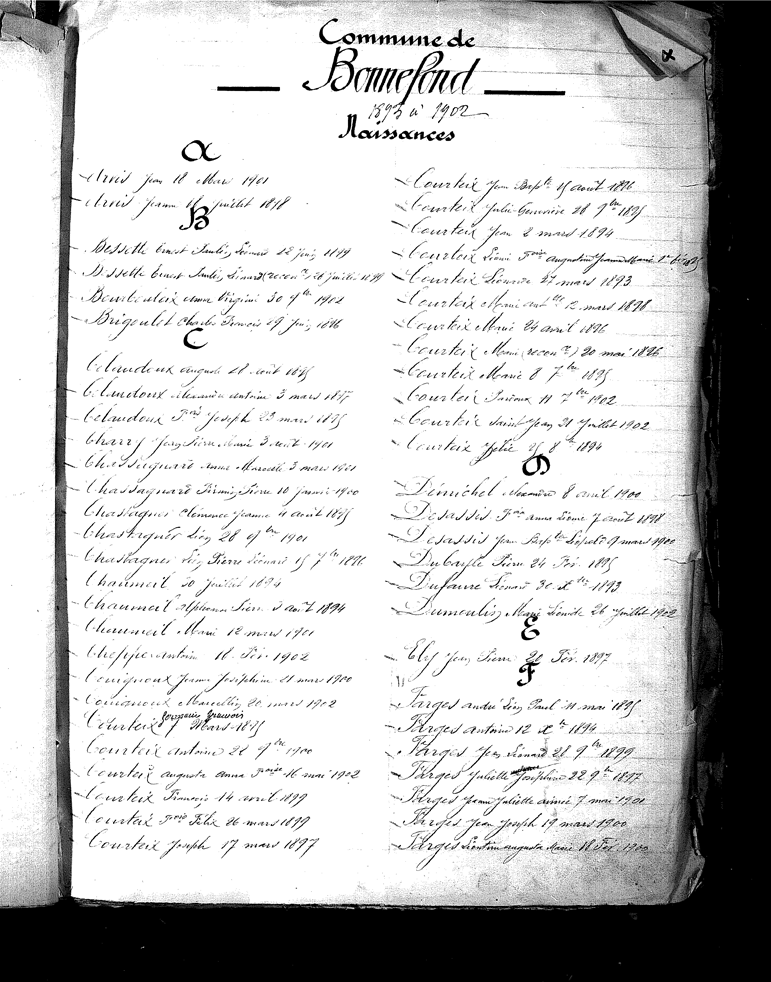 Commune de
Bonnefond
1893 à 1902
Naissances
A
Arois Jean 18 Mars 1901
Arois Jeanne Juillet 1898
B
Bessette Ernest Paulin Léonard 12 Juin 1899
Bessette Ernest Paulin Léonard (recon ce) 26 Juillet 1899
Bourbouleix Anna Virginie 30 9bre 1902
Brigoulet Charles François 29 Juin 1896
C
Celaudoux auguste 28 Août 1895
Celaudoux Alexandre Antoine 3 mars 1897
Celaudoux Fois Joseph 23 mars 1895
Charry Jean Pierre Marie 3 Août 1901
Chassagnard Anna Marcelle 3 mars 1901
Chassagnard Firmin Pierre 10 Janvier 1900
Chastagner Clémence Jeanne 11 août 1895
Chastagner Léon 28 9bre 1901
Chastagner Léon Pierre Léonard 15 7bre 1896
Chaumeil 30 Juillet 1894
Chaumeil Alphonse Pierre 3 août 1894
Chaumeil Marie 12 mars 1901
Cheppe Antoine 18 Fév. 1902
Couignoux Jeanne Joséphine 21 mars 1900
Couignoux Marcellin 20 mars 1902
Courteix François 7 Mars 1895
Courteix Antoine 22 9bre 1900
Courteix augusta anna Foise 16 mai 1902
Courteix François 14 avril 1899
Courteix Fois Félix 26 mars 1899
Courteix Joseph 17 mars 1897
Courteix Jean Bapte 15 août 1896
Courteix Julie Geneviève 28 9bre 1895
Courteix Jean 2 mars 1894
Courteix Léonie Foise augustine Jeanne Marie 1er
Courteix Léonard 27 mars 1893
Courteix Marie antte 12 mars 1898
Courteix Marie 24 avril 1896
Courteix Marie (recon ce) 20 mai 1896
Courteix Marie 8 7bre 1895
Courteix 11 7bre 1902
Courteix Saint-Jean 21 Juillet 1902
Courteix Félix 25 8bre 1894
D
Démichel Alexandre 8 avril 1900
Désassis Foise anna Léonie 7 août 1898
Desassis Jean Bapte Léopold 9 mars 1900
Dubayle Pierre 24 Fév. 1895
Dufaure Léonard 30 Xbre 1893
Dumoulin Marie Léonide 26 Juillet 1902
E
Ely Jean Pierre 20 Fév. 1897
F
Farges andré Léon Paul 11 mai 1895
Farges antoine 12 Xbre 1894
Farges Jean Léonard 28 9bre 1899
Farges Juliette Joséphine 22 9bre 1897
Farges Jeanne Juliette aimée 7 mai 1901
Farges Jean Joseph 19 mars 1900
Farges Léontine augusta Marie 18 Fév. 1900